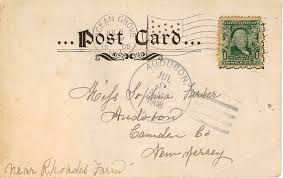 OCEAN GROVE
1908
...Post Card...
AUDUBON
JUL
1908
Miss Sophia Farber
Audobon
Camden Co
New Jersey
near Rhoades Farm